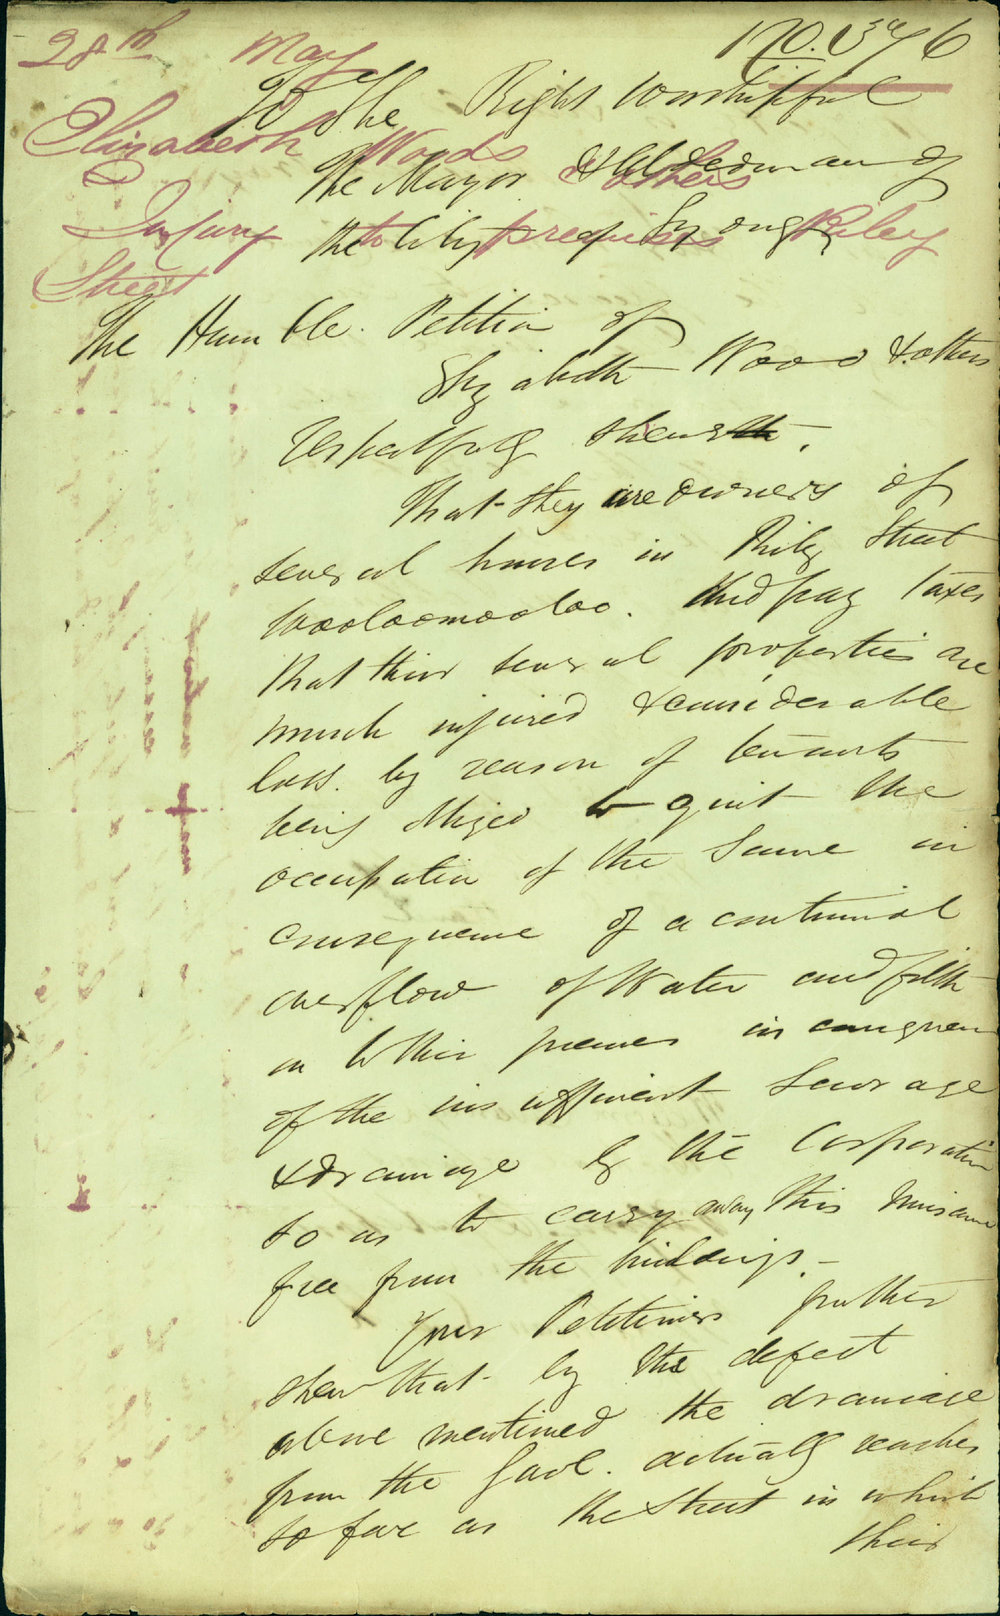 28th May No. 376
Elizabeth Woods & others
Injury to premises Riley
Street
To the Right Worshipful
The Mayor & Aldermen of
the City of Sydney
The Humble Petition of
Elizabeth Wood & others
Respectfully Sheweth.
That they are owners of
several houses in Riley Street
Wooloomooloo. And pay taxes
that their several properties are
much injured & considerable
loss. by reason of tenants
being obliged to quit the
occupation of the same in
consequence of a continual
overflow of Water and filth
in to their premises in consequence
of the insufficient Sewrage
& drainage by the Corporation
so as to carry away this Nuisance
free from the buildings. —
Your Petitioners further
shew that by the defect
above mentioned the drainage
from the Gaol. actually reaches
so far as the Street in which
their